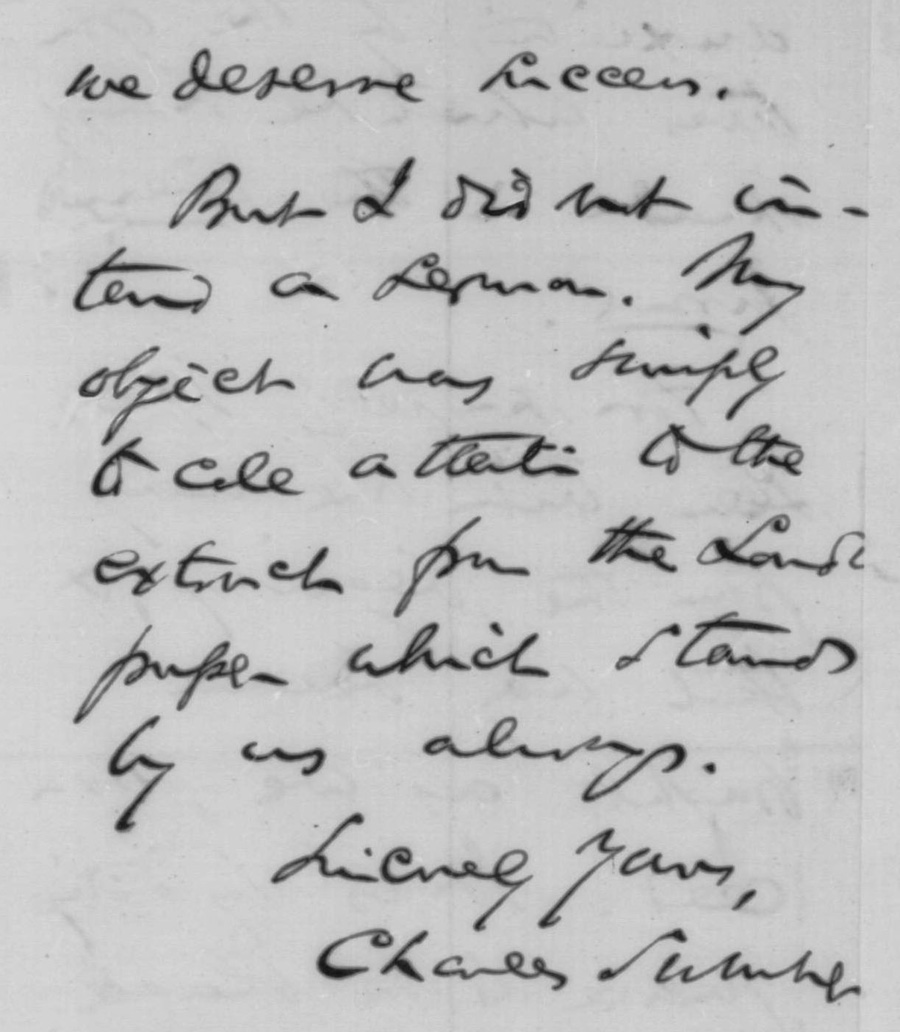 we deserve success.
But I did not in-
tend a sermon. My
object was simply
to call attention to the
extract from the
paper which stands
by us always.
Sincerely Yours,
Charles Sumner